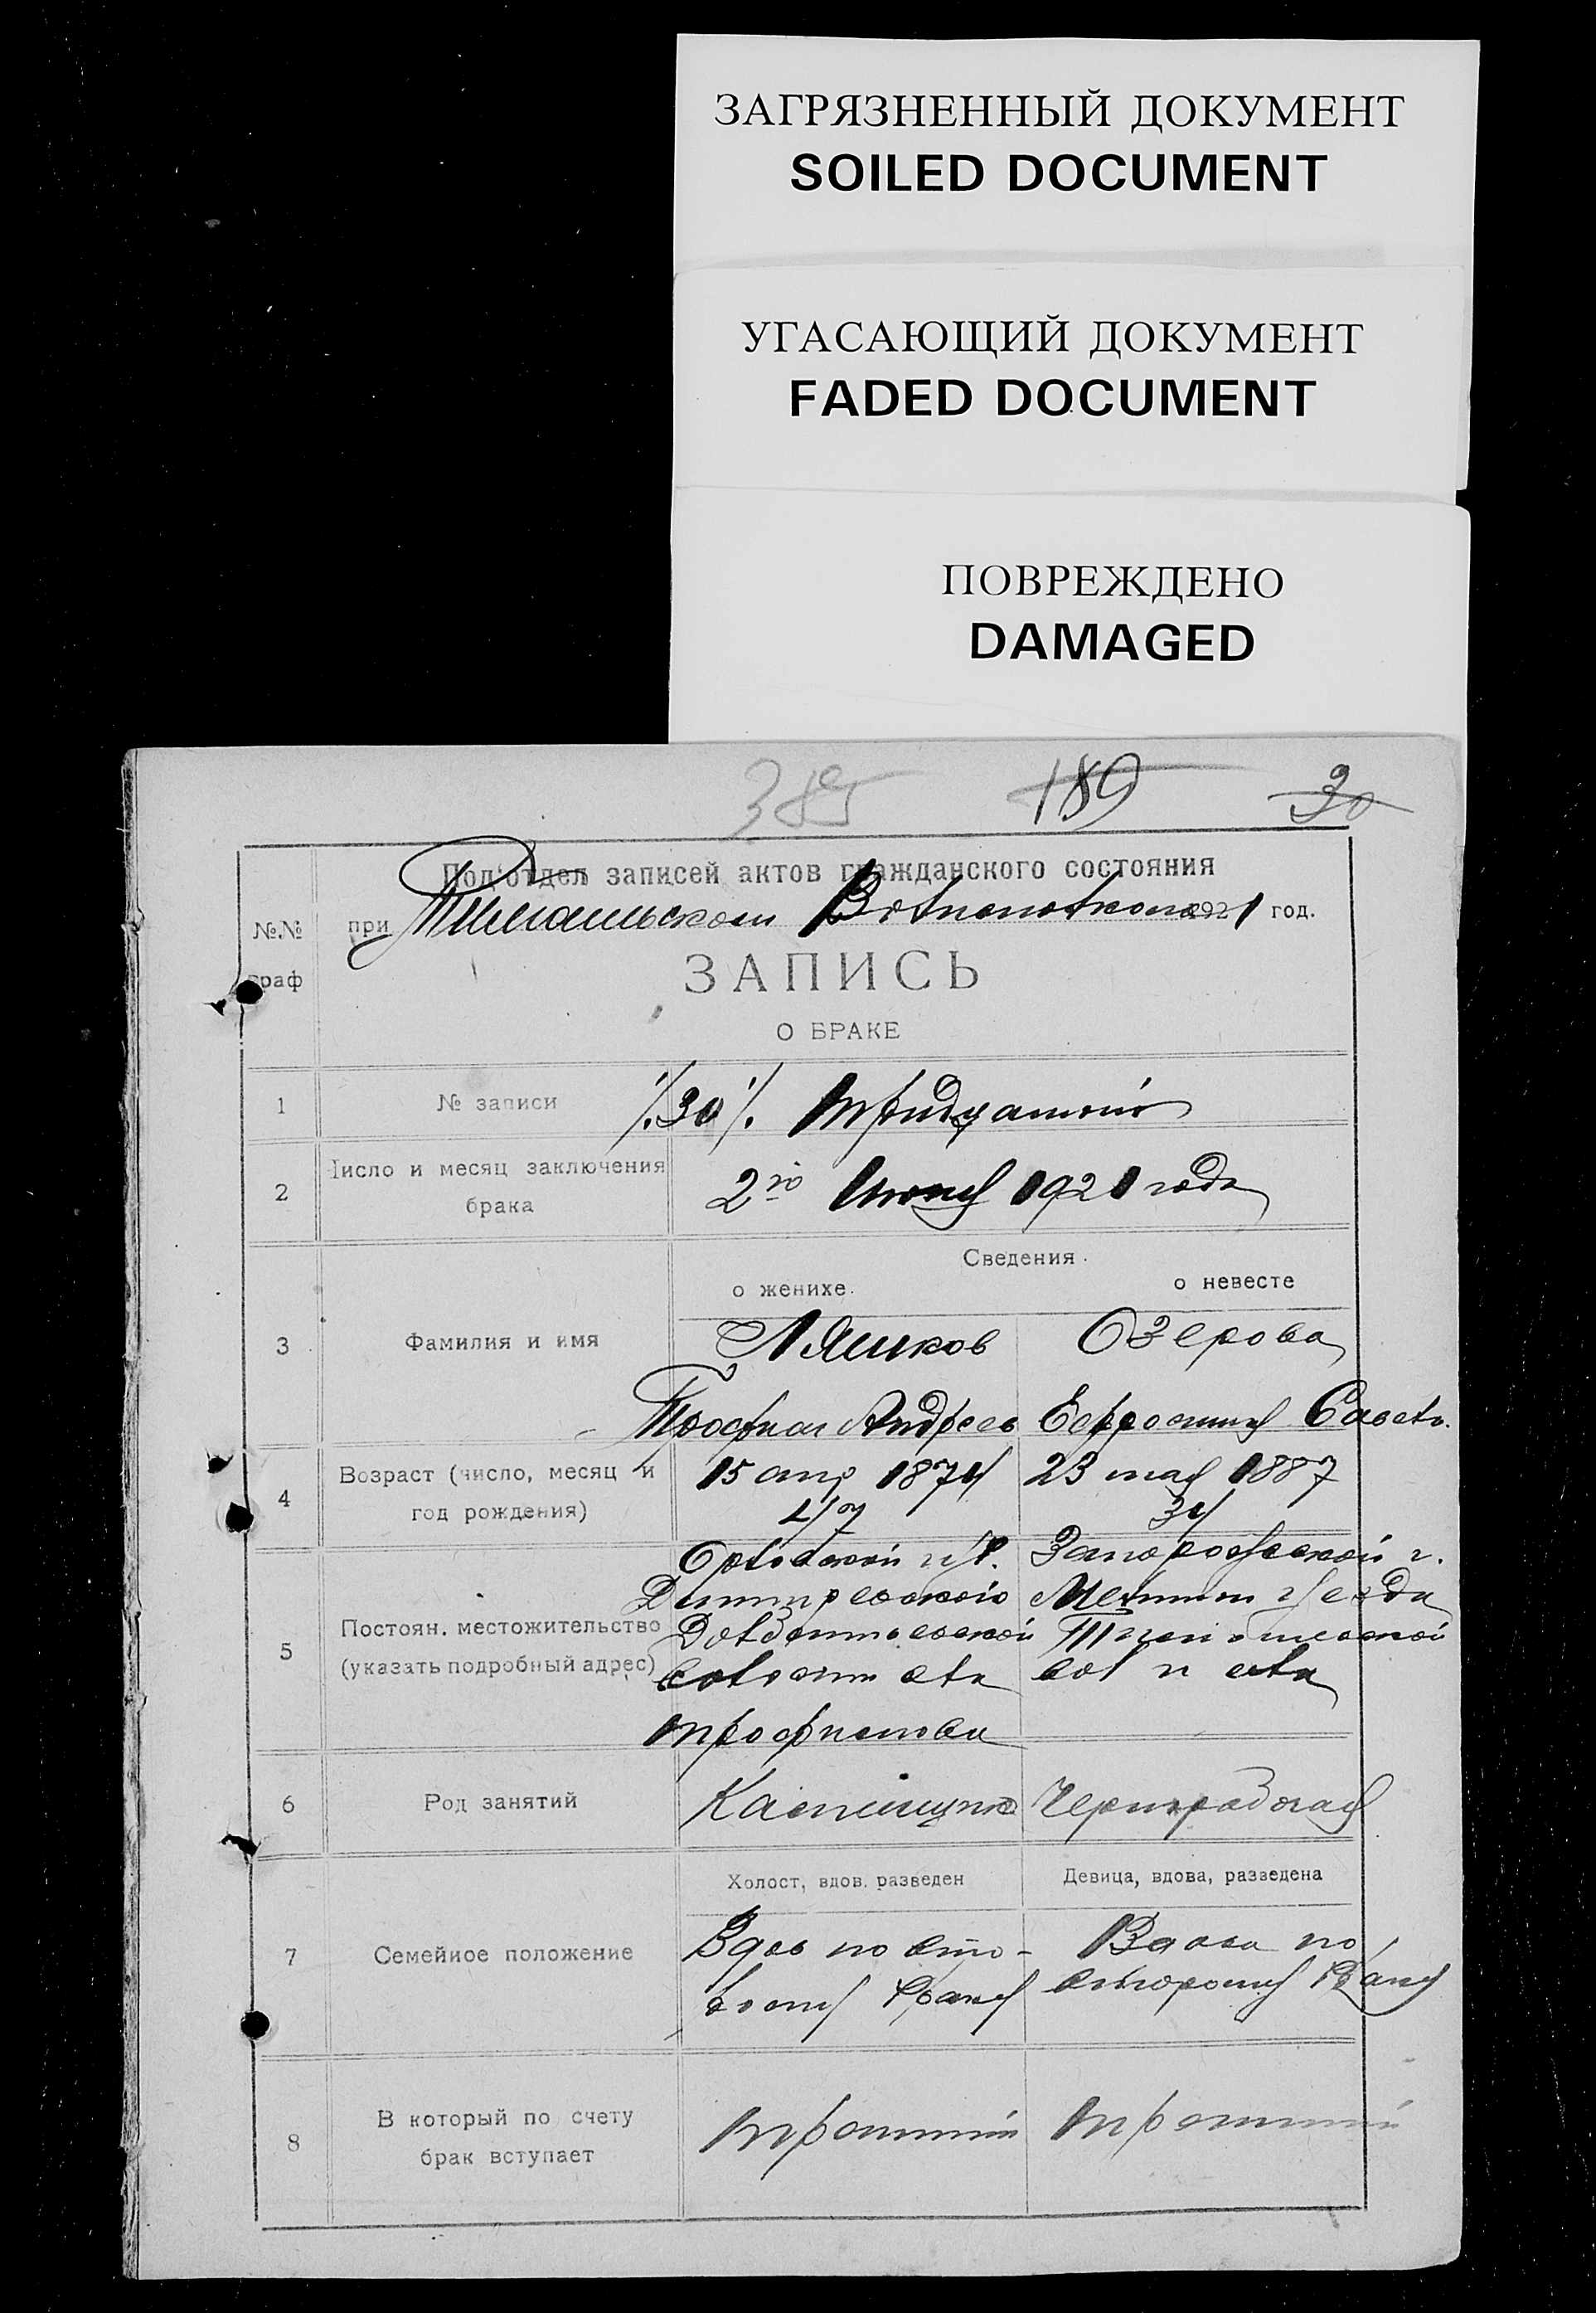 ЗАГРЯЗНЕННЫЙ ДОКУМЕНТ
SOILED DOCUMENT
УГАСАЮЩИЙ ДОКУМЕНТ
FADED DOCUMENT
ПОВРЕЖДЕНО
DAMAGED
385 189 30
Под'отдел записей актов гражданского состояния
№№ граф
при Волисполкоме 1921 год.
ЗАПИСЬ
О БРАКЕ
1 № записи ./.30./. тридцатый
2 Число и месяц заключения брака
2го Июня 1921 года
Сведения.
о женихе. о невесте
3 Фамилия и имя
Ляшков Озерова
Трофим Андреев Ефросиния Савел.
4 Возраст (число, месяц и год рождения)
15 апр 1874 23 мая 1887
47 34
5 Постоян. местожительство (указать подробный адрес)
Орловской г. Запорожской г.
Дмитревского Мелитоп уезда
волости села вол и села
Трофимовка
6 Род занятий
Каменщик Чернорабочая
Холост, вдов. разведен Девица, вдова, разведена
7 Семейное положение
Вдов по вто- Вдова по
рому браку второму браку
8 В который по счету брак вступает
третий третий